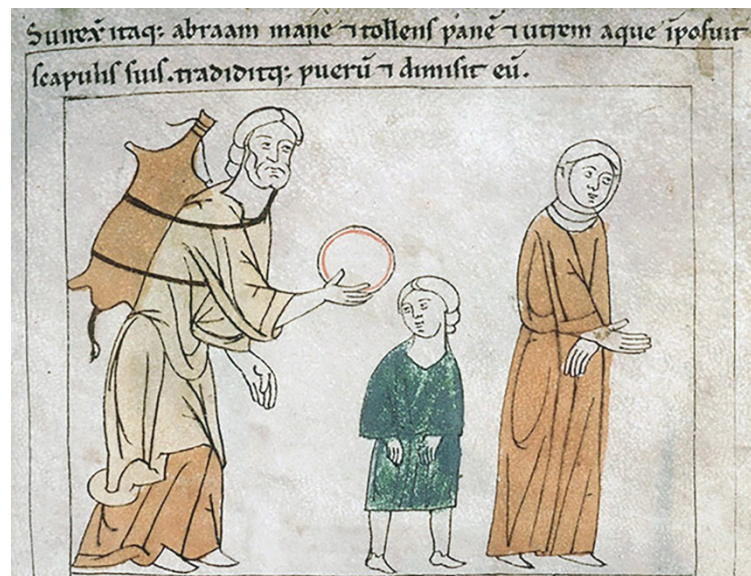 Surrex̄ itaq; abraam mane ⁊ tollens panē ⁊ utrem aque īposuit
scapulis suis. tradiditq; puerū ⁊ dimisit eū.